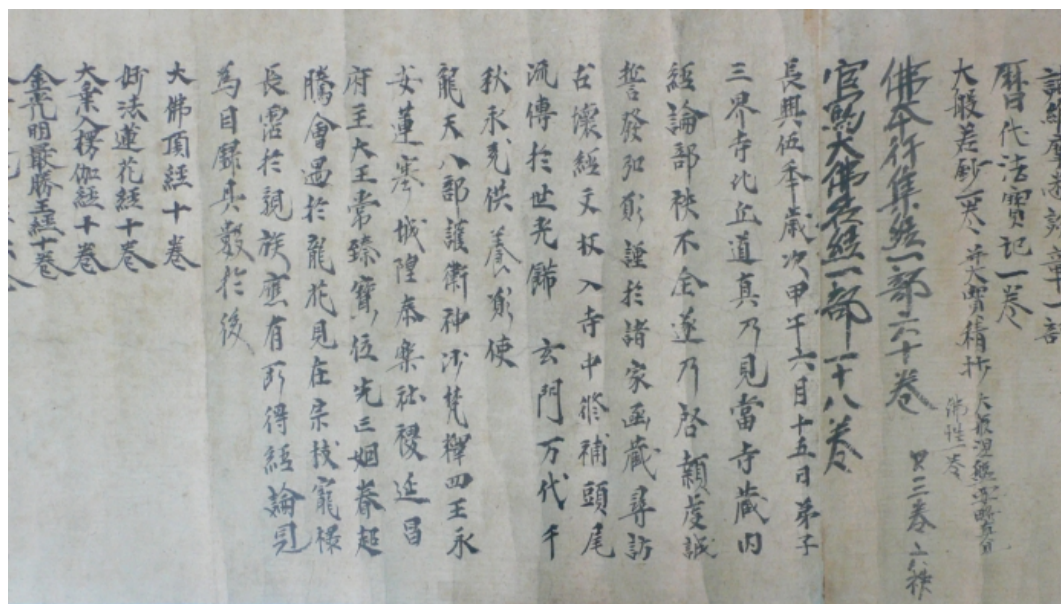 曆代法寶記一卷
大般若鈔一卷 并大寶積抄
佛性一卷
佛本行集經一部六十卷 欠三卷六袟
官寫大佛名經一部一十八卷
長興伍年歲次甲午六月十五日弟子
三界寺比丘道真乃見當寺藏內
經論部袟不全遂乃啓顙虔誠
誓發弘願謹於諸家函藏尋訪
古壞經文收入寺中修補頭尾
流傳於世光餝玄門万代千
秋永充供養願使
龍天八部護衛神沙梵釋四王永
安蓮塞城隍泰樂社稷延昌
府主大王常臻寶位先亡姻眷超
騰會遇於龍花見在宗枝寵祿
長霑於親族應有所得經論見
為目録具數於後
大佛頂經十卷
妙法蓮花經十卷
大乘入楞伽經十卷
金光明最勝王經十卷